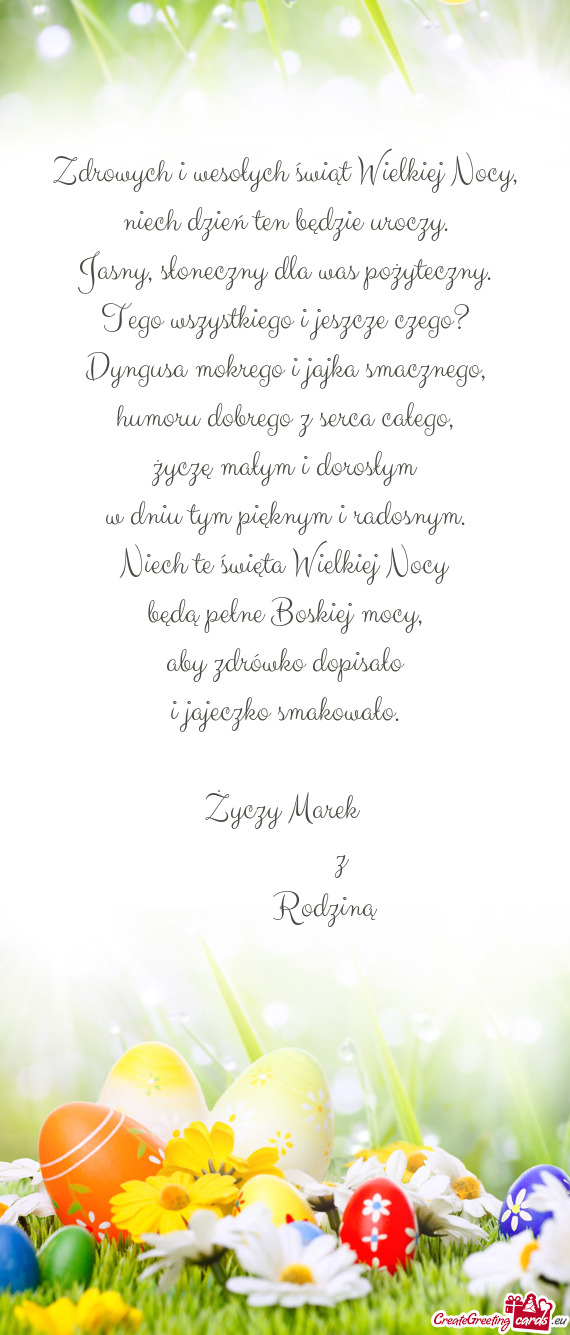 Zdrowych i wesołych świąt Wielkiej Nocy,
niech dzień ten będzie uroczy.
Jasny, słoneczny dla was pożyteczny.
Tego wszystkiego i jeszcze czego?
Dyngusa mokrego i jajka smacznego,
humoru dobrego z serca całego,
życzę małym i dorosłym
w dniu tym pięknym i radosnym.
Niech te święta Wielkiej Nocy
będą pełne Boskiej mocy,
aby zdrówko dopisało
i jajeczko smakowało.
Życzy Marek
z
Rodziną
CreateGreeting cards .eu